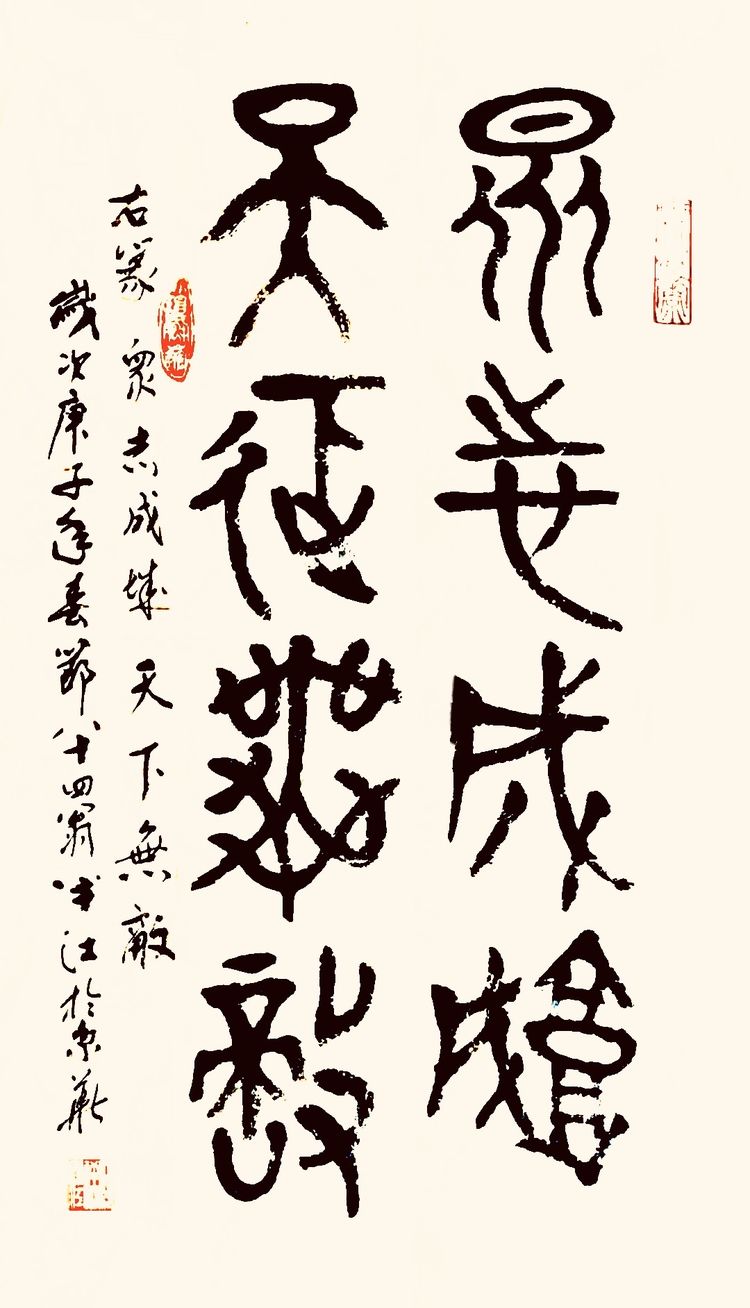 眾志成城
天下無敵
右篆 眾志成城 天下無敵
歲次庚子年春鄂八十四翁江於京